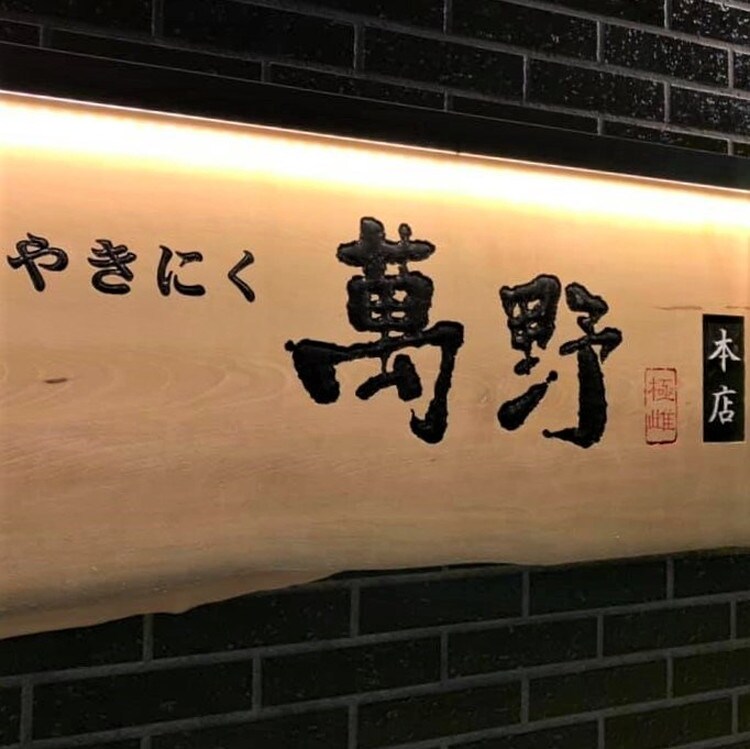 やきにく 萬野
極雌
本店